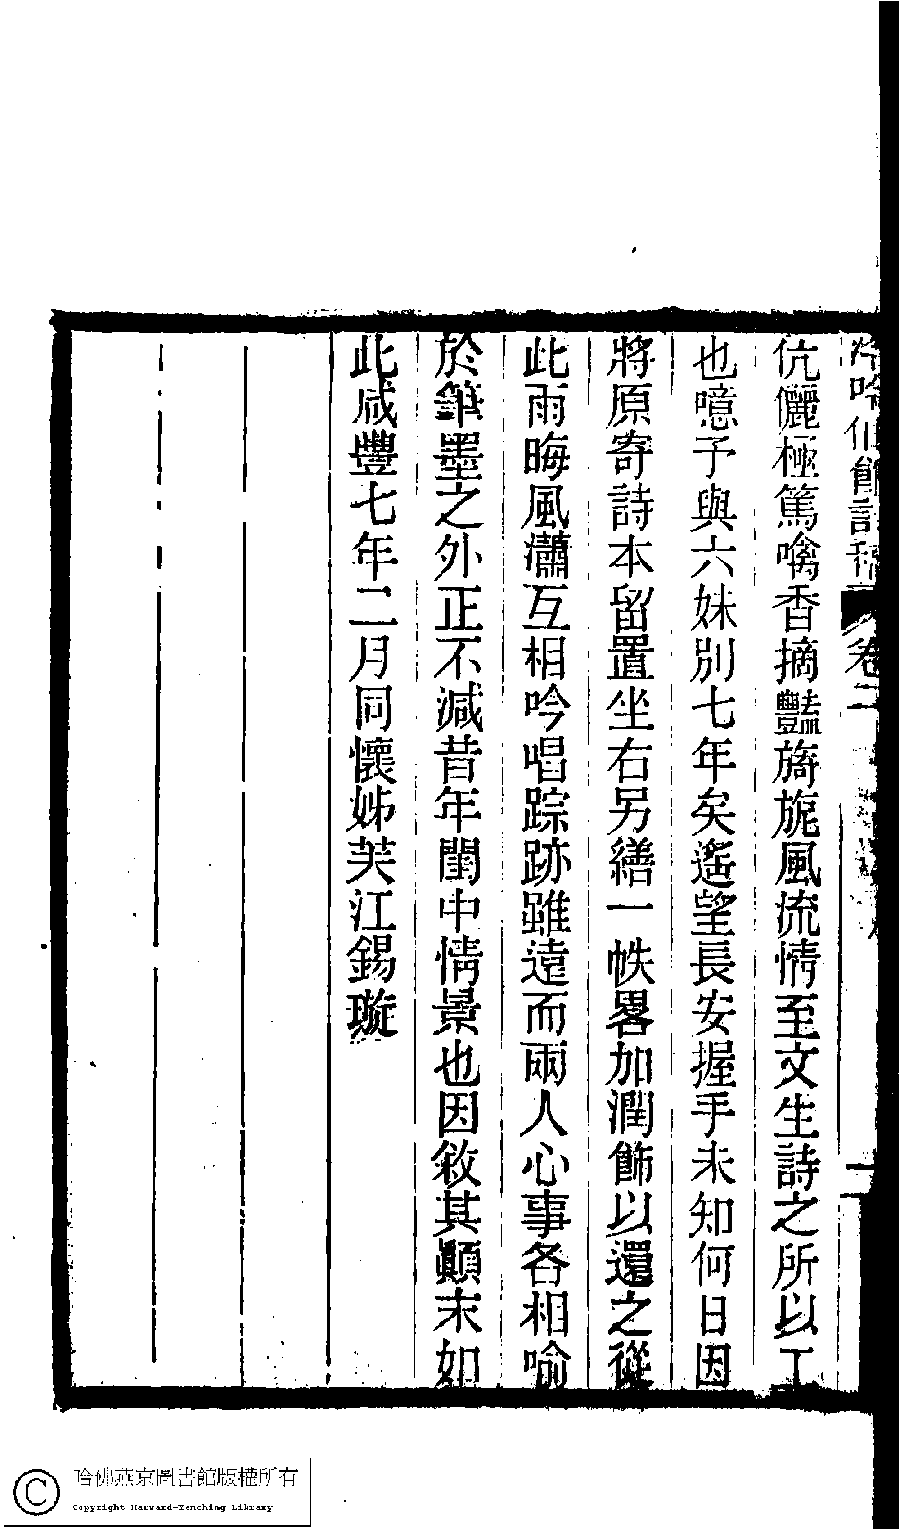 冷吟仙館詩稿 卷二
伉儷極篤噙香摘豔旖旎風流情至文生詩之所以工
也噫予與六妹別七年矣遙望長安握手未知何日因
將原寄詩本留置坐右另繕一帙畧加潤飾以還之從
此雨晦風瀟互相吟唱踪跡雖遠而兩人心事各相喻
於筆墨之外正不減昔年閨中情景也因敘其顛末如
此咸豐七年二月同懷姊芙江錫璇
哈佛燕京圖書館版權所有
Copyright Harvard-Yenching Library